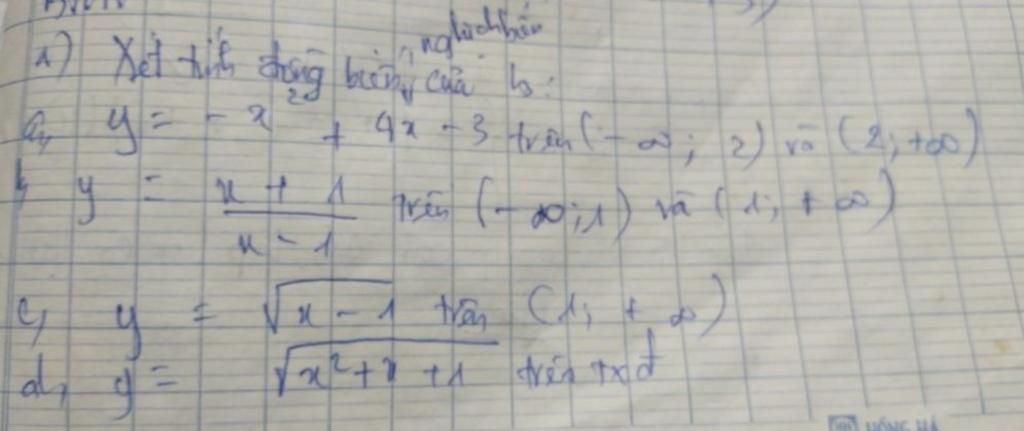 1) Xét tính đồng biến, nghịch biến của hs:
a, y = - x² + 4x - 3 trên (- ∞; 2) và (2; +∞)
b, y = x + 1 / x - 1 trên (- ∞; 1) và (1; + ∞)
c, y = √x - 1 trên (1; + ∞)
d, y = √x² + x + 1 trên txđ
HỒNG HÀ